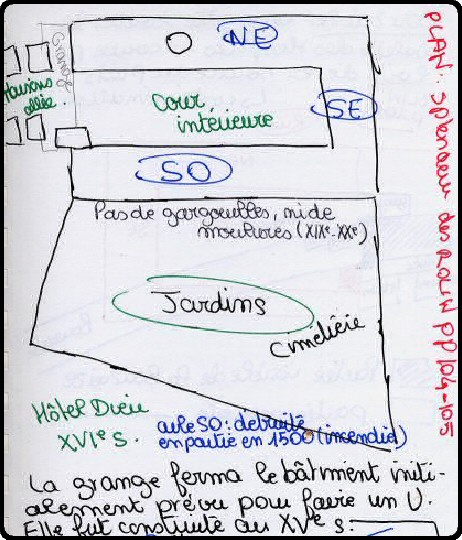 NE
Grange
maisons
allée
cour
interieure
SE
SO
PLAN: splendeur des ROLIN PP104-105
Pas de gargouilles, ni de
moulures (XIXe-XXe)
Jardins
Cimetière
Hôtel Dieu
XVIe s.
aile SO: detruite
en partie en 1500 (incendie)
La grange ferma le bâtiment initi-
alement prévu pour faire un U.
Elle fut construite au XVe s.